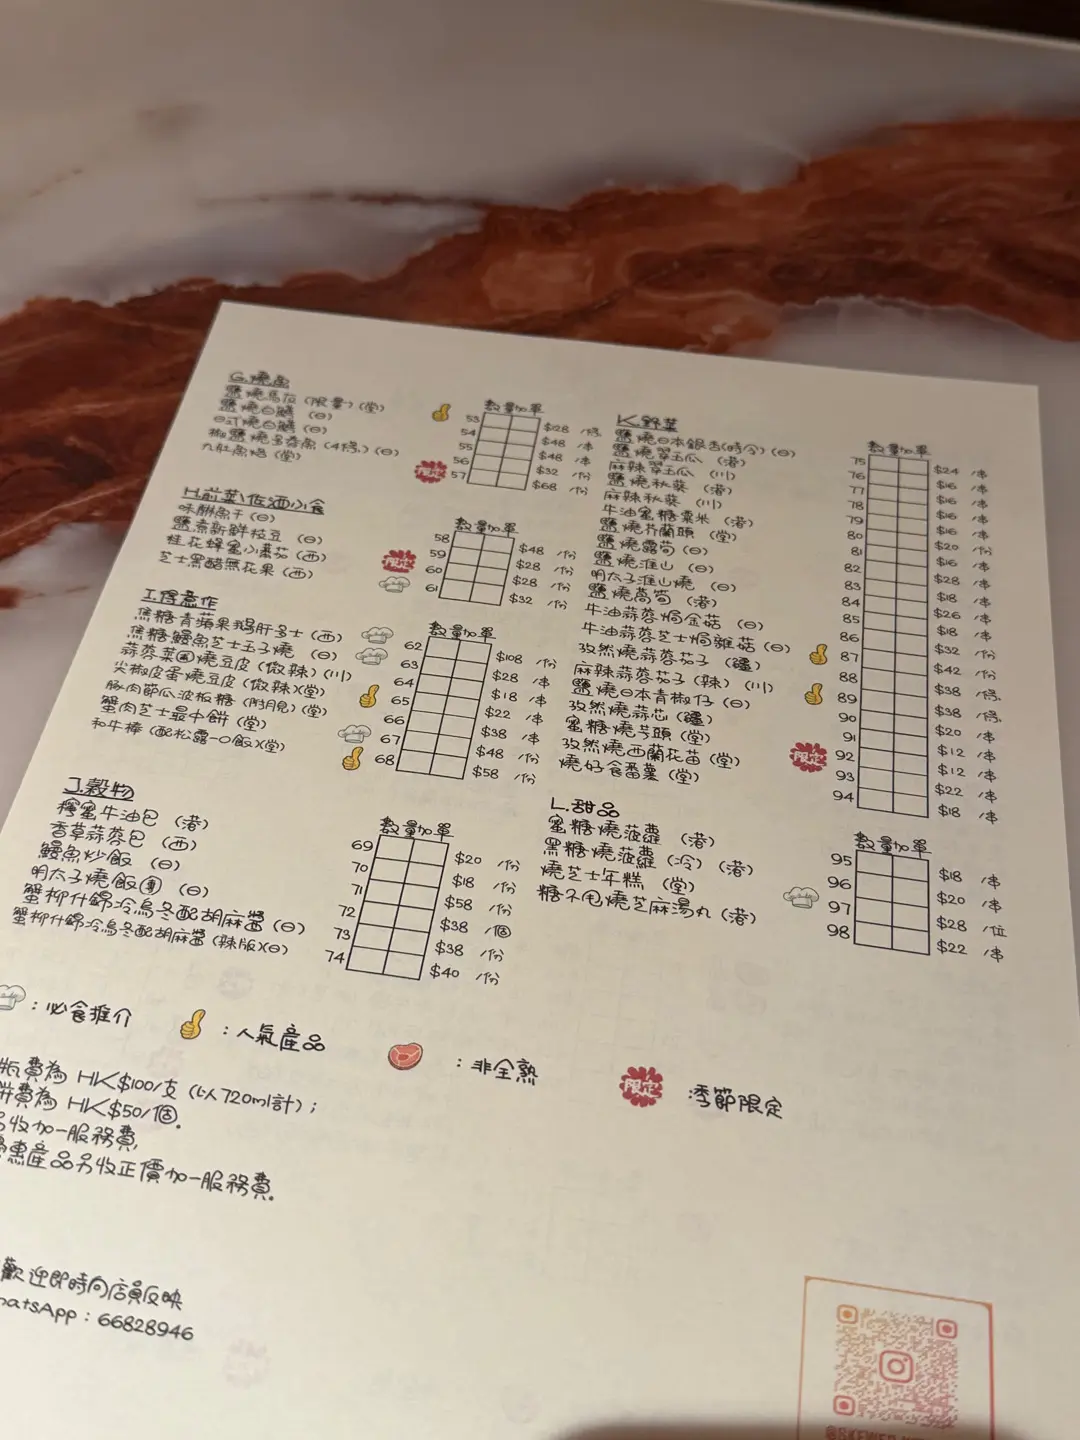 G.燒魚
鹽燒馬友 (限量) (堂)
鹽燒白鱔 (日)
日式燒白鱔 (日)
椒鹽燒多春魚 (4條) (日)
九肚魚焙 (堂)
數量加單
53 $28 /條
54 $48 /串
55 $48 /串
56 $32 /份
限定 57 $68 /份
H.前菜\佐酒小食
味醂魚干 (日)
鹽煮新鮮枝豆 (日)
桂花蜂蜜小番茄 (西)
芝士黑醋無花果 (西)
數量加單
58 $48 /份
59 $28 /份
限定 60 $28 /份
61 $32 /份
I.得意作
焦糖青蘋果鵝肝多士 (西)
焦糖鰻魚芝士玉子燒 (日)
蒜蓉菜圃燒豆皮 (微辣) (川)
尖椒皮蛋燒豆皮 (微辣)(堂)
豚肉節瓜波板糖 (附月見) (堂)
蟹肉芝士最中餅 (堂)
和牛棒 (配松露一口飯)(堂)
數量加單
62 $108 /份
63 $28 /串
64 $18 /串
65 $22 /串
66 $38 /串
67 $48 /份
68 $58 /份
J.穀物
檸蜜牛油包 (港)
香草蒜蓉包 (西)
鰻魚炒飯 (日)
明太子燒飯團 (日)
蟹柳什錦冷烏冬配胡麻醬 (日)
蟹柳什錦冷烏冬配胡麻醬 (辣版)(日)
數量加單
69 $20 /份
70 $18 /份
71 $58 /份
72 $38 /個
73 $38 /份
74 $40 /份
K.野菜
鹽燒日本銀杏(時令)(日)
鹽燒翠玉瓜 (港)
麻辣翠玉瓜 (川)
鹽燒秋葵 (港)
麻辣秋葵 (川)
牛油蜜糖粟米 (港)
鹽燒芥蘭頭 (堂)
鹽燒露荀 (日)
鹽燒淮山 (日)
明太子淮山燒 (日)
鹽燒萵筍 (港)
牛油蒜蓉焗金菇 (日)
牛油蒜蓉芝士焗雜菇 (日)
孜然燒蒜蓉茄子 (疆)
麻辣蒜蓉茄子 (辣) (川)
鹽燒日本青椒仔 (日)
孜然燒蒜芯 (疆)
蜜糖燒芋頭 (堂)
孜然燒西蘭花苗 (堂)
燒好食番薯 (堂)
數量加單
75
76
77
78
79
80
81
82
83
84
85
86
87
88
89
90
91
限定 92
93
94
$24 /串
$16 /串
$16 /串
$16 /串
$16 /串
$20 /份
$28 /串
$18 /串
$26 /串
$18 /串
$32 /份
$42 /份
$38 /條
$38 /條
$20 /串
$12 /串
$12 /串
$22 /串
$18 /串
L.甜品
蜜糖燒菠蘿 (港)
黑糖燒菠蘿 (冷) (港)
燒芝士年糕 (堂)
糖不甩燒芝麻湯丸 (港)
數量加單
95 $18 /串
96 $20 /串
97 $28 /位
98 $22 /串
：必食推介
：人氣產品
：非全熟
限定 ：季節限定
瓶費為 HK$100/支 (以720ml計)；
餅費為 HK$50/個.
另收加一服務費,
優惠產品另收正價加一服務費.
歡迎即時向店員反映
hatsApp：66828946